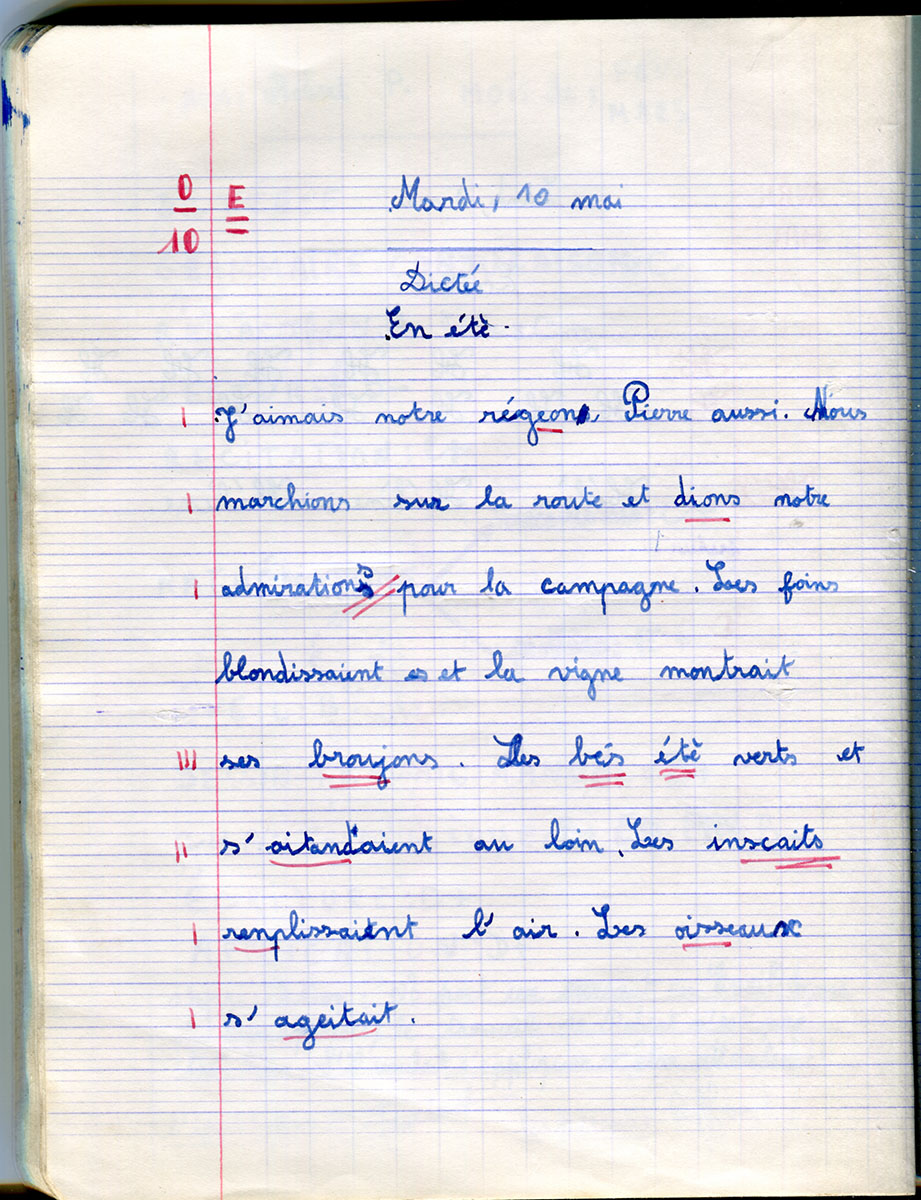 0 E Mardi, 10 mai
10
Dictée
En étè.
I J'aimais notre régeon, Pierre aussi. Nous
I marchions sur la route et dions notre
I admirations pour la campagne. Les foins
blondissaient es et la vigne montrait
III ses broujons. Les bés étè verts et
II s'aitandaient au loin. Les inscaits
I renplissaient l'air. Les oisseaux
I s'ageitait.